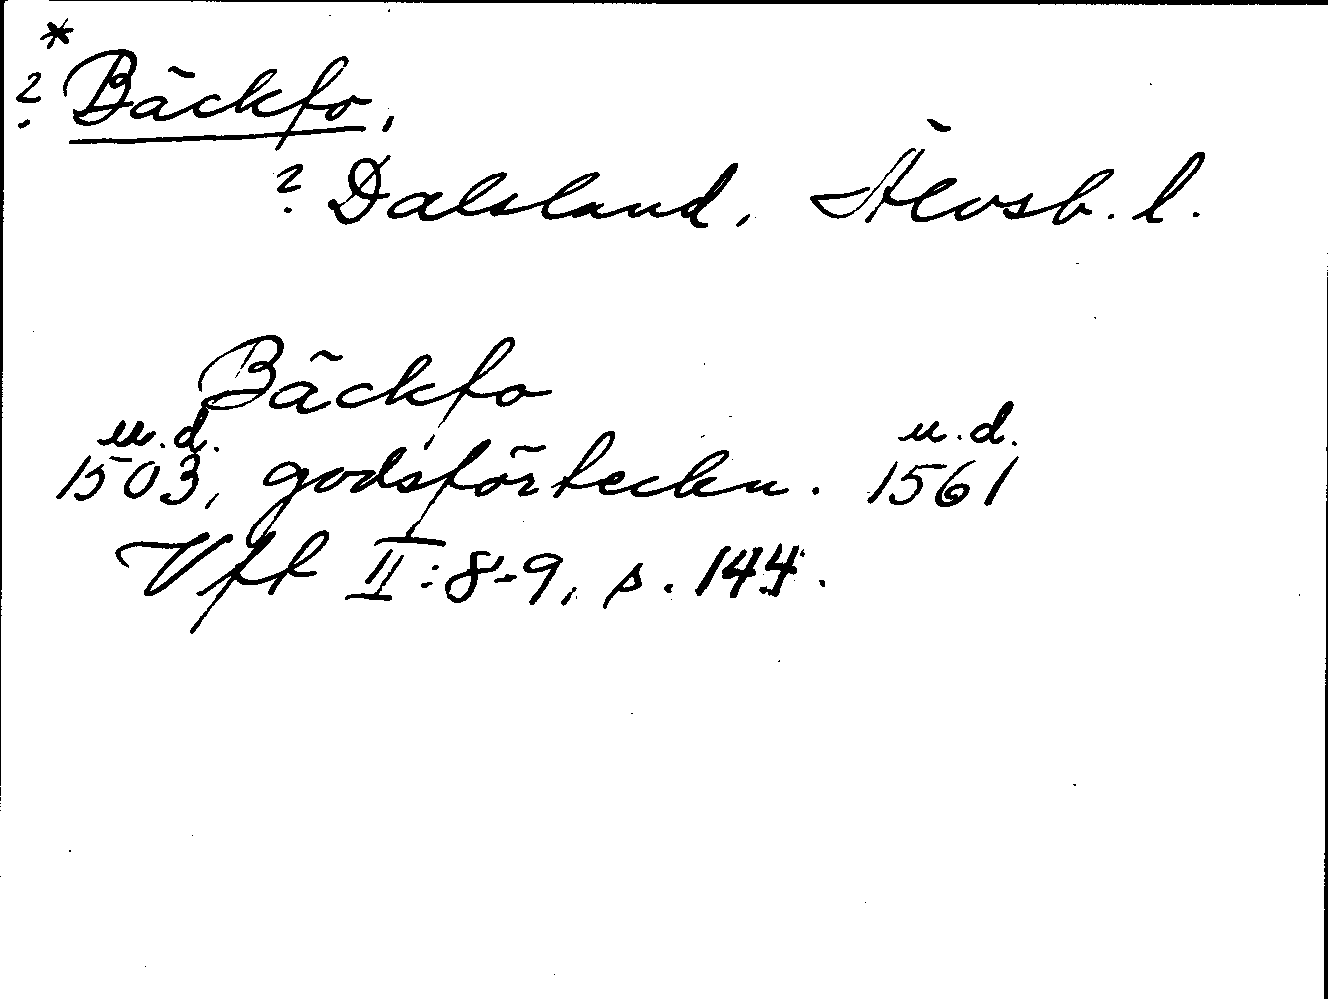 *
? Bäckfo,
? Dalsland, Älvsb. l.
Bäckfo
u.d. u.d.
1503, godsförteckn. 1561
Vft II:8-9, s. 144.